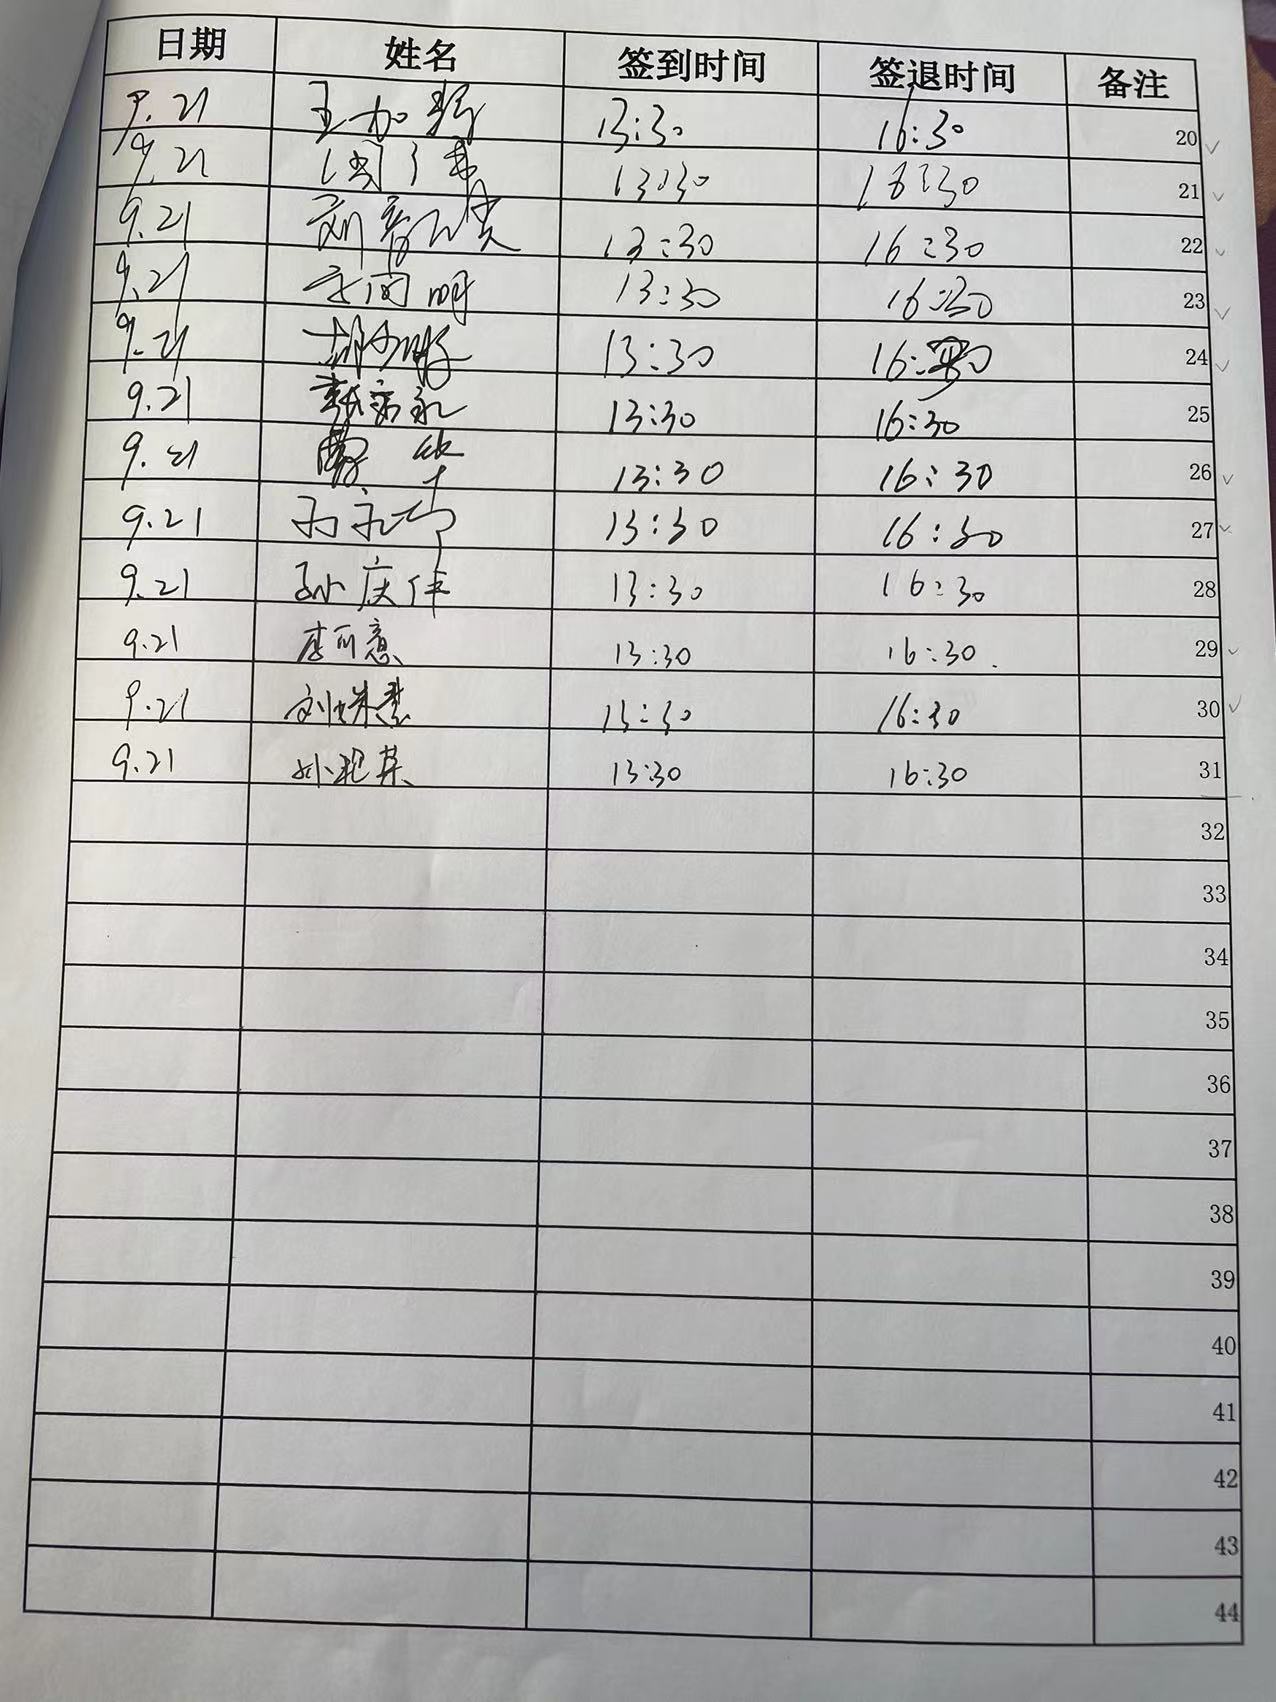 日期 姓名 签到时间 签退时间 备注
9.21 王加 13:30 16:30 20
9.21 13:30 16:30 21
9.21 刘 13:30 16:30 22
9.21 明 13:30 16:30 23
9.21 胡 13:30 16:30 24
9.21 13:30 16:30 25
9.21 曹华 13:30 16:30 26
9.21 孙 13:30 16:30 27
9.21 孙庆伟 13:30 16:30 28
9.21 李可意 13:30 16:30 29
9.21 刘 13:30 16:30 30
9.21 孙艳英 13:30 16:30 31
32
33
34
35
36
37
38
39
40
41
42
43
44